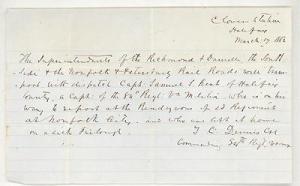 Clover Station
Halifax
March 17, 1862
The Superintendents of the Richmond & Danville, the South
Side & the Norfolk & Petersburg Rail Roads will trans-
port, with dispatch Capt. Samuel T. of Halifax
County, a Capt. of the Regt. Va Militia, who is on his
way, to report at the Rendezvous of sd Regiment
at Norfolk City, and who was left at home
on a sick Furlough.
T. C. Dennis Col
Commanding Regt